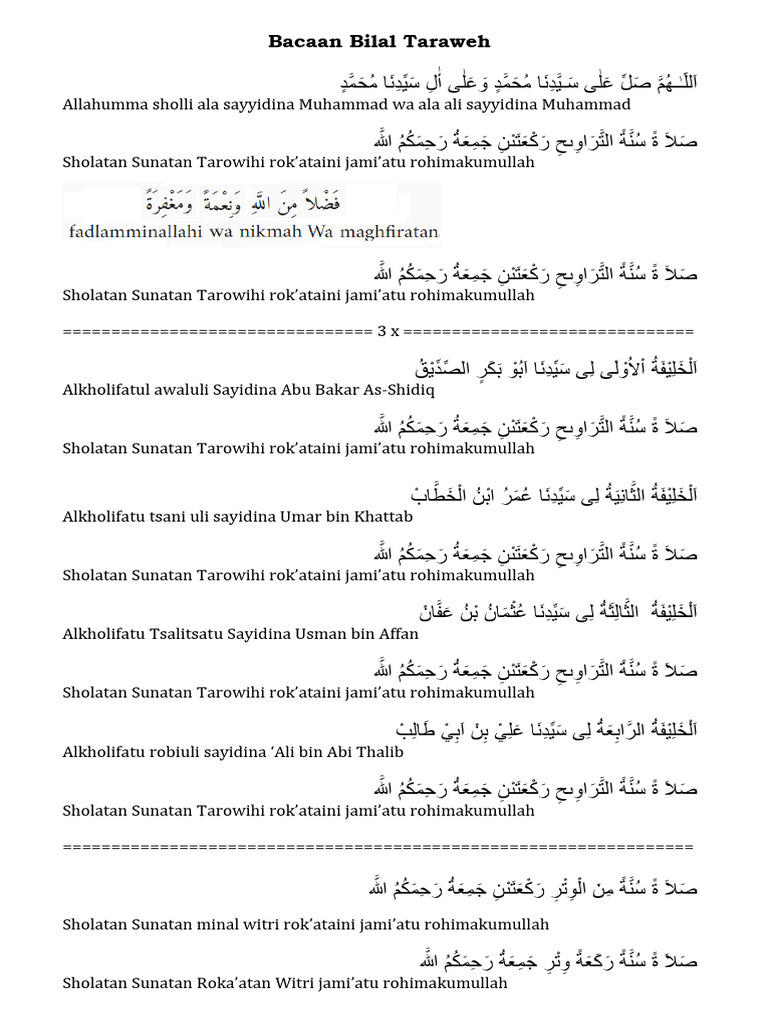 Bacaan Bilal Taraweh
اَللّٰـهُمَّ صَلِّ عَلٰى سَـيَّدِنَا مُحَمَّدٍ وَعَلٰى أٰلِ سَيِّدِنَا مُحَمَّدٍ
Allahumma sholli ala sayyidina Muhammad wa ala ali sayyidina Muhammad
صَلاَ ةً سُنَّةً التَّرَاوِيحِ رَكْعَتَيْنِ جَمِعَةُ رَحِمَكُمُ اللَّه
Sholatan Sunatan Tarowihi rok’ataini jami’atu rohimakumullah
فَضْلاً مِنَ اللَّهِ وَنِعْمَةً وَمَغْفِرَةً
fadlamminallahi wa nikmah Wa maghfiratan
صَلاَ ةً سُنَّةً التَّرَاوِيحِ رَكْعَتَيْنِ جَمِعَةُ رَحِمَكُمُ اللَّه
Sholatan Sunatan Tarowihi rok’ataini jami’atu rohimakumullah
================================ 3 x ==============================
اَلْخَلِيْفَةُ اْلأُوْلَى لِى سَيِّدِنَا اَبُوْ بَكَرٍ الصِّدِّيْقُ
Alkholifatul awaluli Sayidina Abu Bakar As-Shidiq
صَلاَ ةً سُنَّةً التَّرَاوِيحِ رَكْعَتَيْنِ جَمِعَةُ رَحِمَكُمُ اللَّه
Sholatan Sunatan Tarowihi rok’ataini jami’atu rohimakumullah
اَلْخَلِيْفَةُ الثَّانِيَةُ لِى سَيِّدِنَا عُمَرُ ابْنُ الْخَطَّابْ
Alkholifatu tsani uli sayidina Umar bin Khattab
صَلاَ ةً سُنَّةً التَّرَاوِيحِ رَكْعَتَيْنِ جَمِعَةُ رَحِمَكُمُ اللَّه
Sholatan Sunatan Tarowihi rok’ataini jami’atu rohimakumullah
اَلْخَلِيْفَةُ الثَّالِثَةُ لِى سَيِّدِنَا عُثْمَانُ بْنُ عَفَّانْ
Alkholifatu Tsalitsatu Sayidina Usman bin Affan
صَلاَ ةً سُنَّةً التَّرَاوِيحِ رَكْعَتَيْنِ جَمِعَةُ رَحِمَكُمُ اللَّه
Sholatan Sunatan Tarowihi rok’ataini jami’atu rohimakumullah
اَلْخَلِيْفَةُ الرَّابِعَةُ لِى سَيِّدِنَا عَلِيْ بِنْ اَبِيْ طَالِبْ
Alkholifatu robiuli sayidina ‘Ali bin Abi Thalib
صَلاَ ةً سُنَّةً التَّرَاوِيحِ رَكْعَتَيْنِ جَمِعَةُ رَحِمَكُمُ اللَّه
Sholatan Sunatan Tarowihi rok’ataini jami’atu rohimakumullah
=================================================================
صَلاَ ةً سُنَّةً مِنَ الْوِتْرِ رَكْعَتَيْنِ جَمِعَةُ رَحِمَكُمُ اللَّه
Sholatan Sunatan minal witri rok’ataini jami’atu rohimakumullah
صَلاَ ةً سُنَّةً رَكَعَةً وِتْرِ جَمِعَةُ رَحِمَكُمُ اللَّه
Sholatan Sunatan Roka’atan Witri jami’atu rohimakumullah